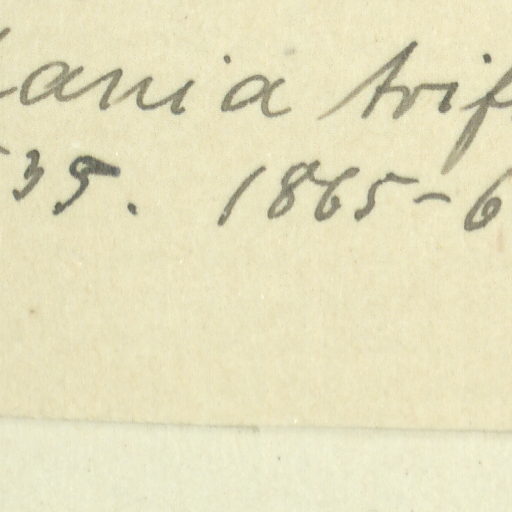 lania trif
535. 1865-6